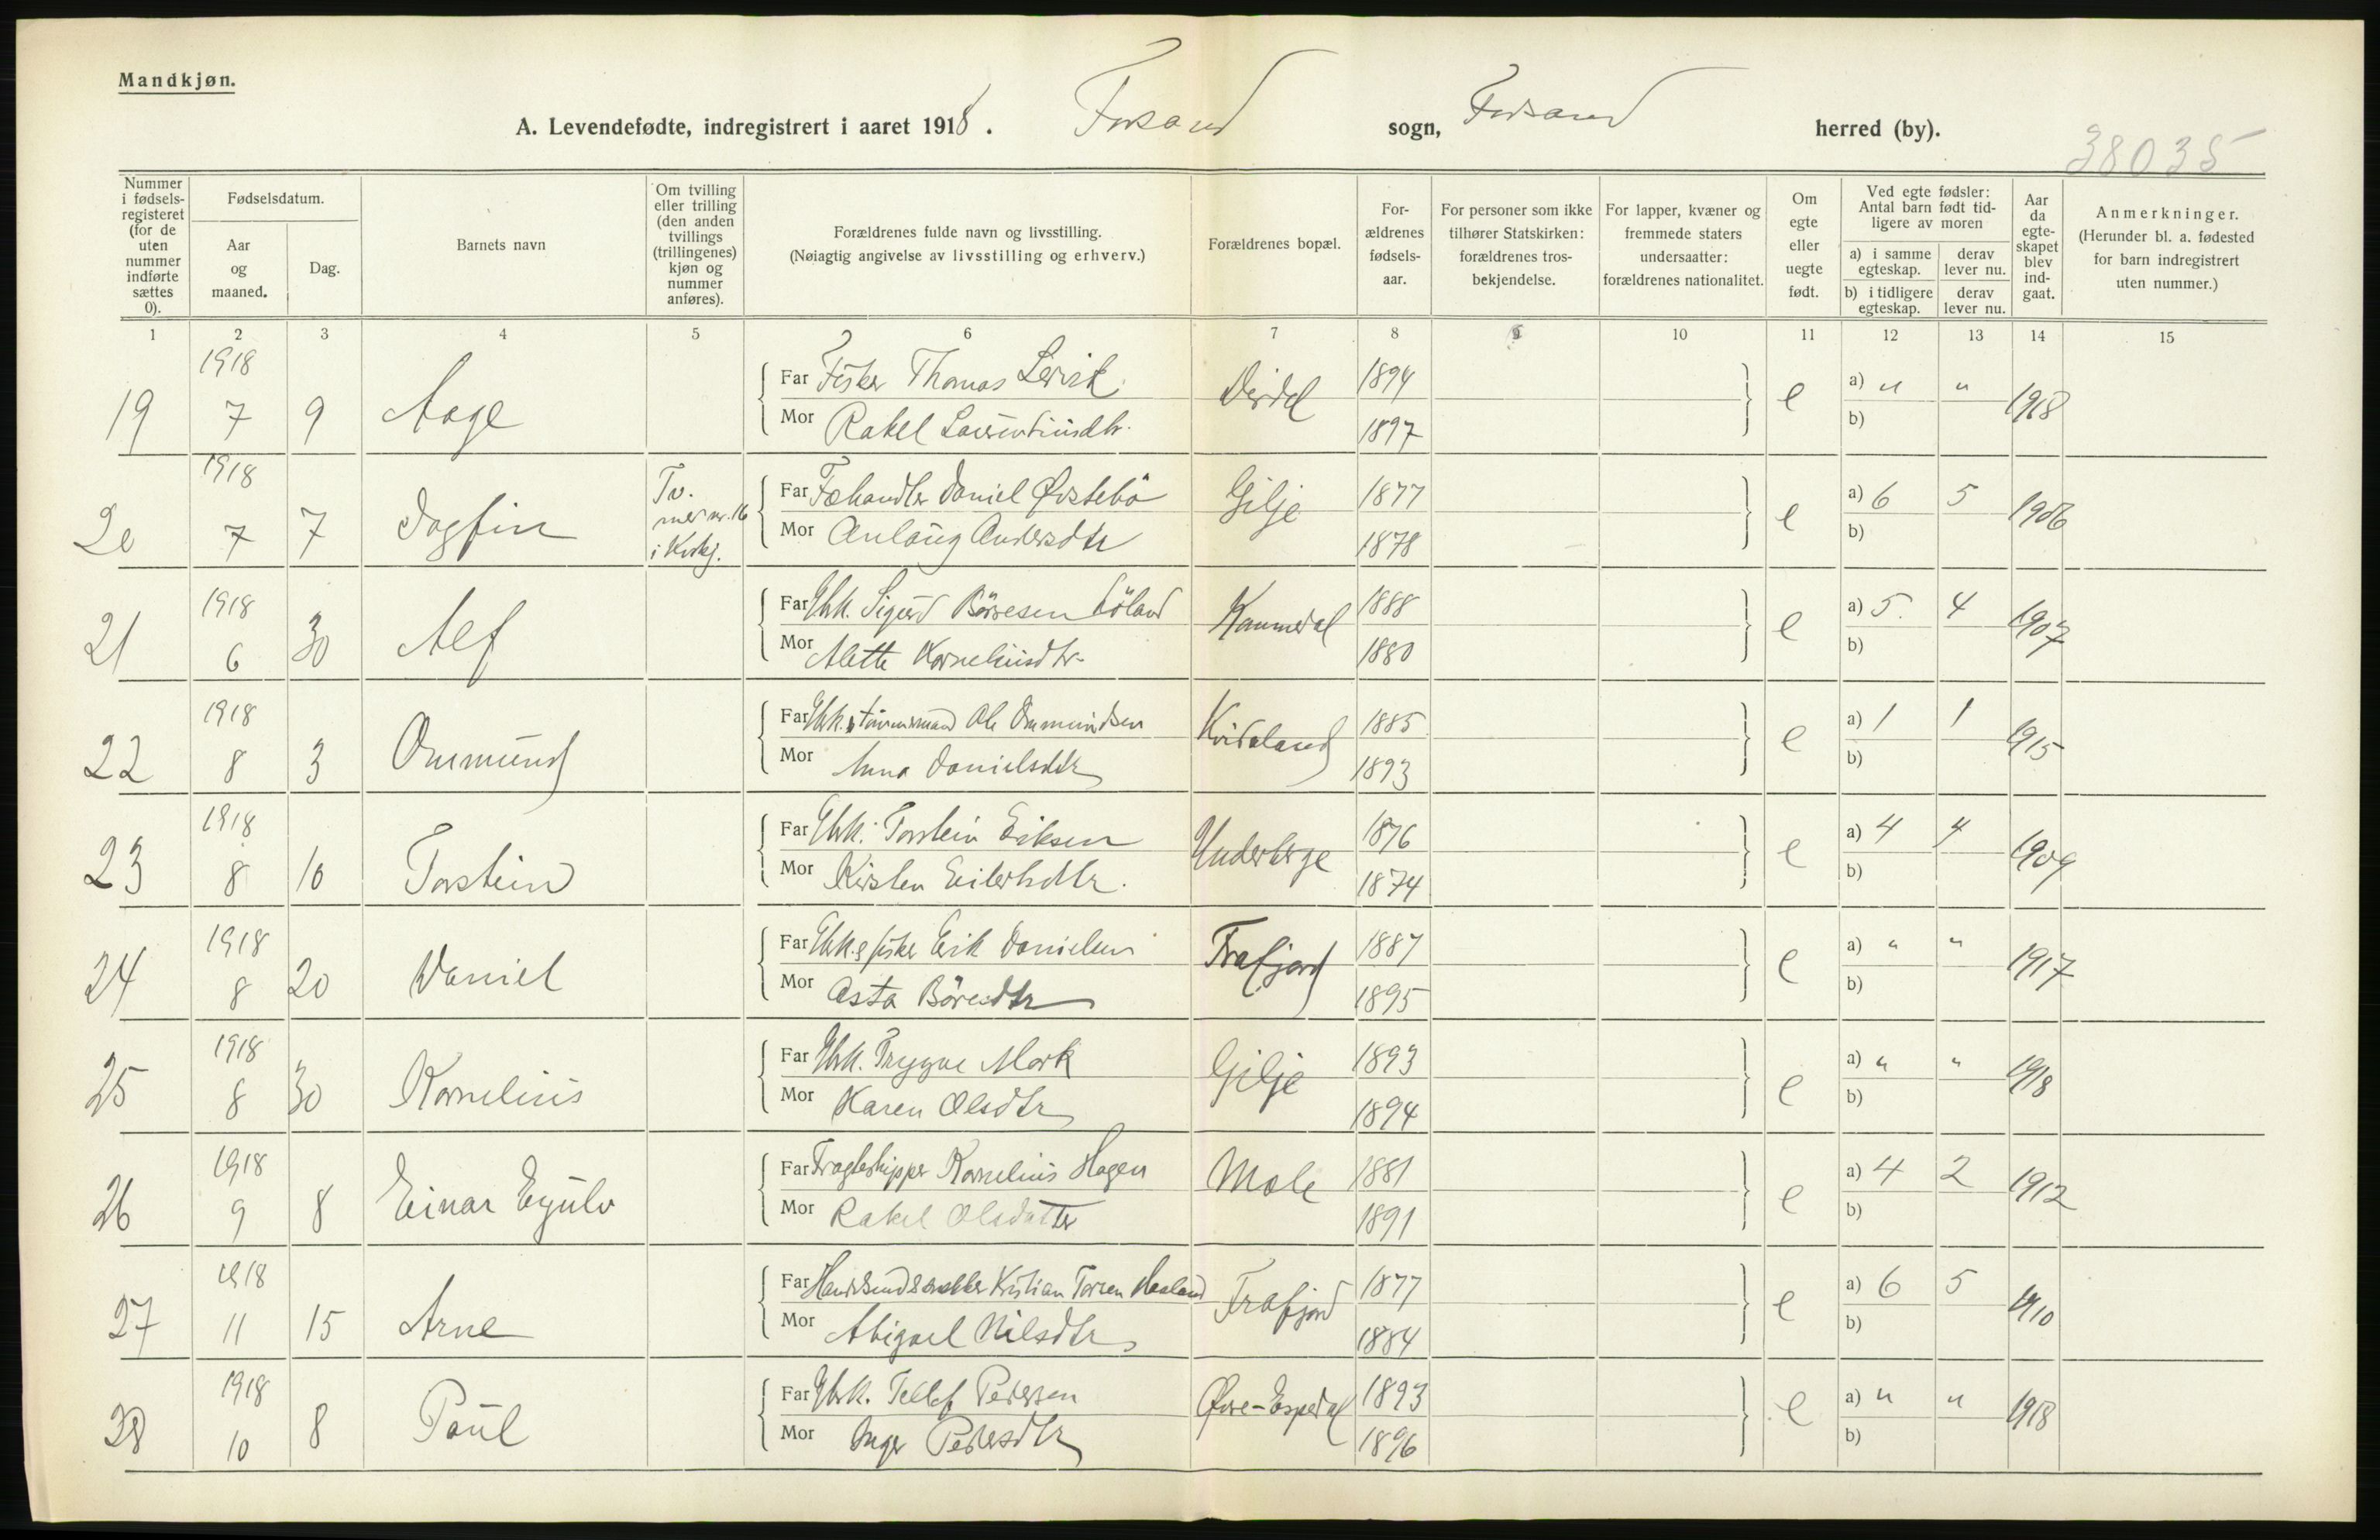 Mandkjøn.
A. Levendefødte, indregistrert i aaret 1918. Forsand sogn, Forsand herred (by).
38035
Nummer i fødsels-registeret (for de uten nummer indførte sættes 0).
Fødselsdatum.
Aar og maaned.
Dag.
Barnets navn
Om tvilling eller trilling (den anden tvillings (trillingenes) kjøn og nummer anføres).
Forældrenes fulde navn og livsstilling.
(Nøiagtig angivelse av livsstilling og erhverv.)
Forældrenes bopæl.
For-ældrenes fødsels-aar.
For personer som ikke tilhører Statskirken: forældrenes tros-bekjendelse.
For lapper, kvæner og fremmede staters undersaatter: forældrenes nationalitet.
Om egte eller uegte født.
Ved egte fødsler: Antal barn født tid-ligere av moren
a) i samme egteskap. derav lever nu.
b) i tidligere egteskap. derav lever nu.
Aar da egte-skapet blev ind-gaat.
Anmerkninger.
(Herunder bl. a. fødested for barn indregistrert uten nummer.)
1 2 3 4 5 6 7 8 9 10 11 12 13 14 15
19 1918 7 9 Aage Far Fisker Thomas Dirdal 1894 e a) " " 1918
Mor Rakel Laurentiusdtr. 1897 b)
20 1918 7 7 Dagfin Tv. med nr. 16 i Kvkj. Far Fæhandler Daniel Østebö Gilje 1877 e a) 6 5 1906
Mor Anlaug Andersdtr 1878 b)
21 1918 6 30 Alf Far Gbk. Sigurd Böresen Löland Kommedal 1888 e a) 5. 4 1907
Mor Alette Korneliusdtr. 1880 b)
22 1918 8 3 Ommund Far Gbk. & tömmermand Ole Ommundsen Kvidaland 1885 e a) 1 1 1915
Mor Anna Danielsdtr 1893 b)
23 1918 8 10 Torstein Far Gbk. Torstein Eriksen Underberge 1876 e a) 4 4 1909
Mor Kirsten Eilertsdtr. 1874 b)
24 1918 8 20 Daniel Far Gbk. & fisker Erik Danielsen Frafjord 1887 e a) " " 1917
Mor Asta Böresdtr 1895 b)
25 1918 8 30 Kornelius Far Gbk. Trygve Mork Gilje 1893 e a) " " 1918
Mor Karen Olsdtr 1894 b)
26 1918 9 8 Einar Eyulv Far Fragteskipper Kornelius Hagen Mole 1881 e a) 4 2 1912
Mor Rakel Olsdatter 1891 b)
27 1918 11 15 Arne Far Kristian Torsen Haaland Frafjord 1877 e a) 6 5 1910
Mor Abigael Nilsdtr 1884 b)
28 1918 10 8 Paul Far Gbk. Tellef Pedersen Øvre-Espedal 1893 e a) " " 1918
Mor Inger Pedersdtr 1896 b)